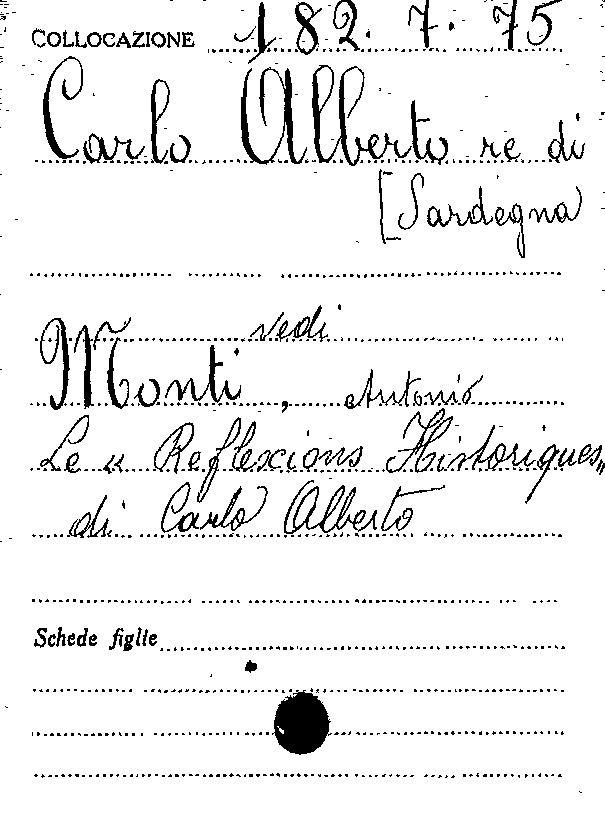 COLLOCAZIONE 182.7.75
Carlo Alberto re di
[Sardegna
vedi
Monti, Antonio
Le « Reflexions Historiques»
di Carlo Alberto
Schede figlie